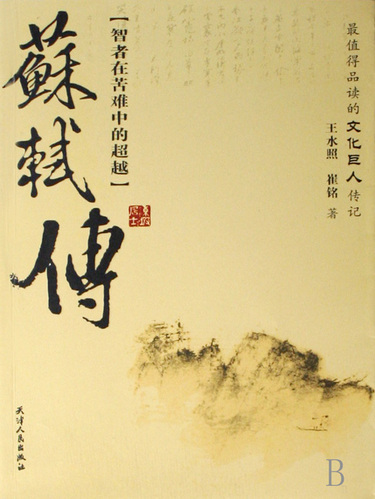 最值得品读的文化巨人传记
王水照 崔铭 著
【智者在苦难中的超越】
蘇軾傳
天津人民出版社
B